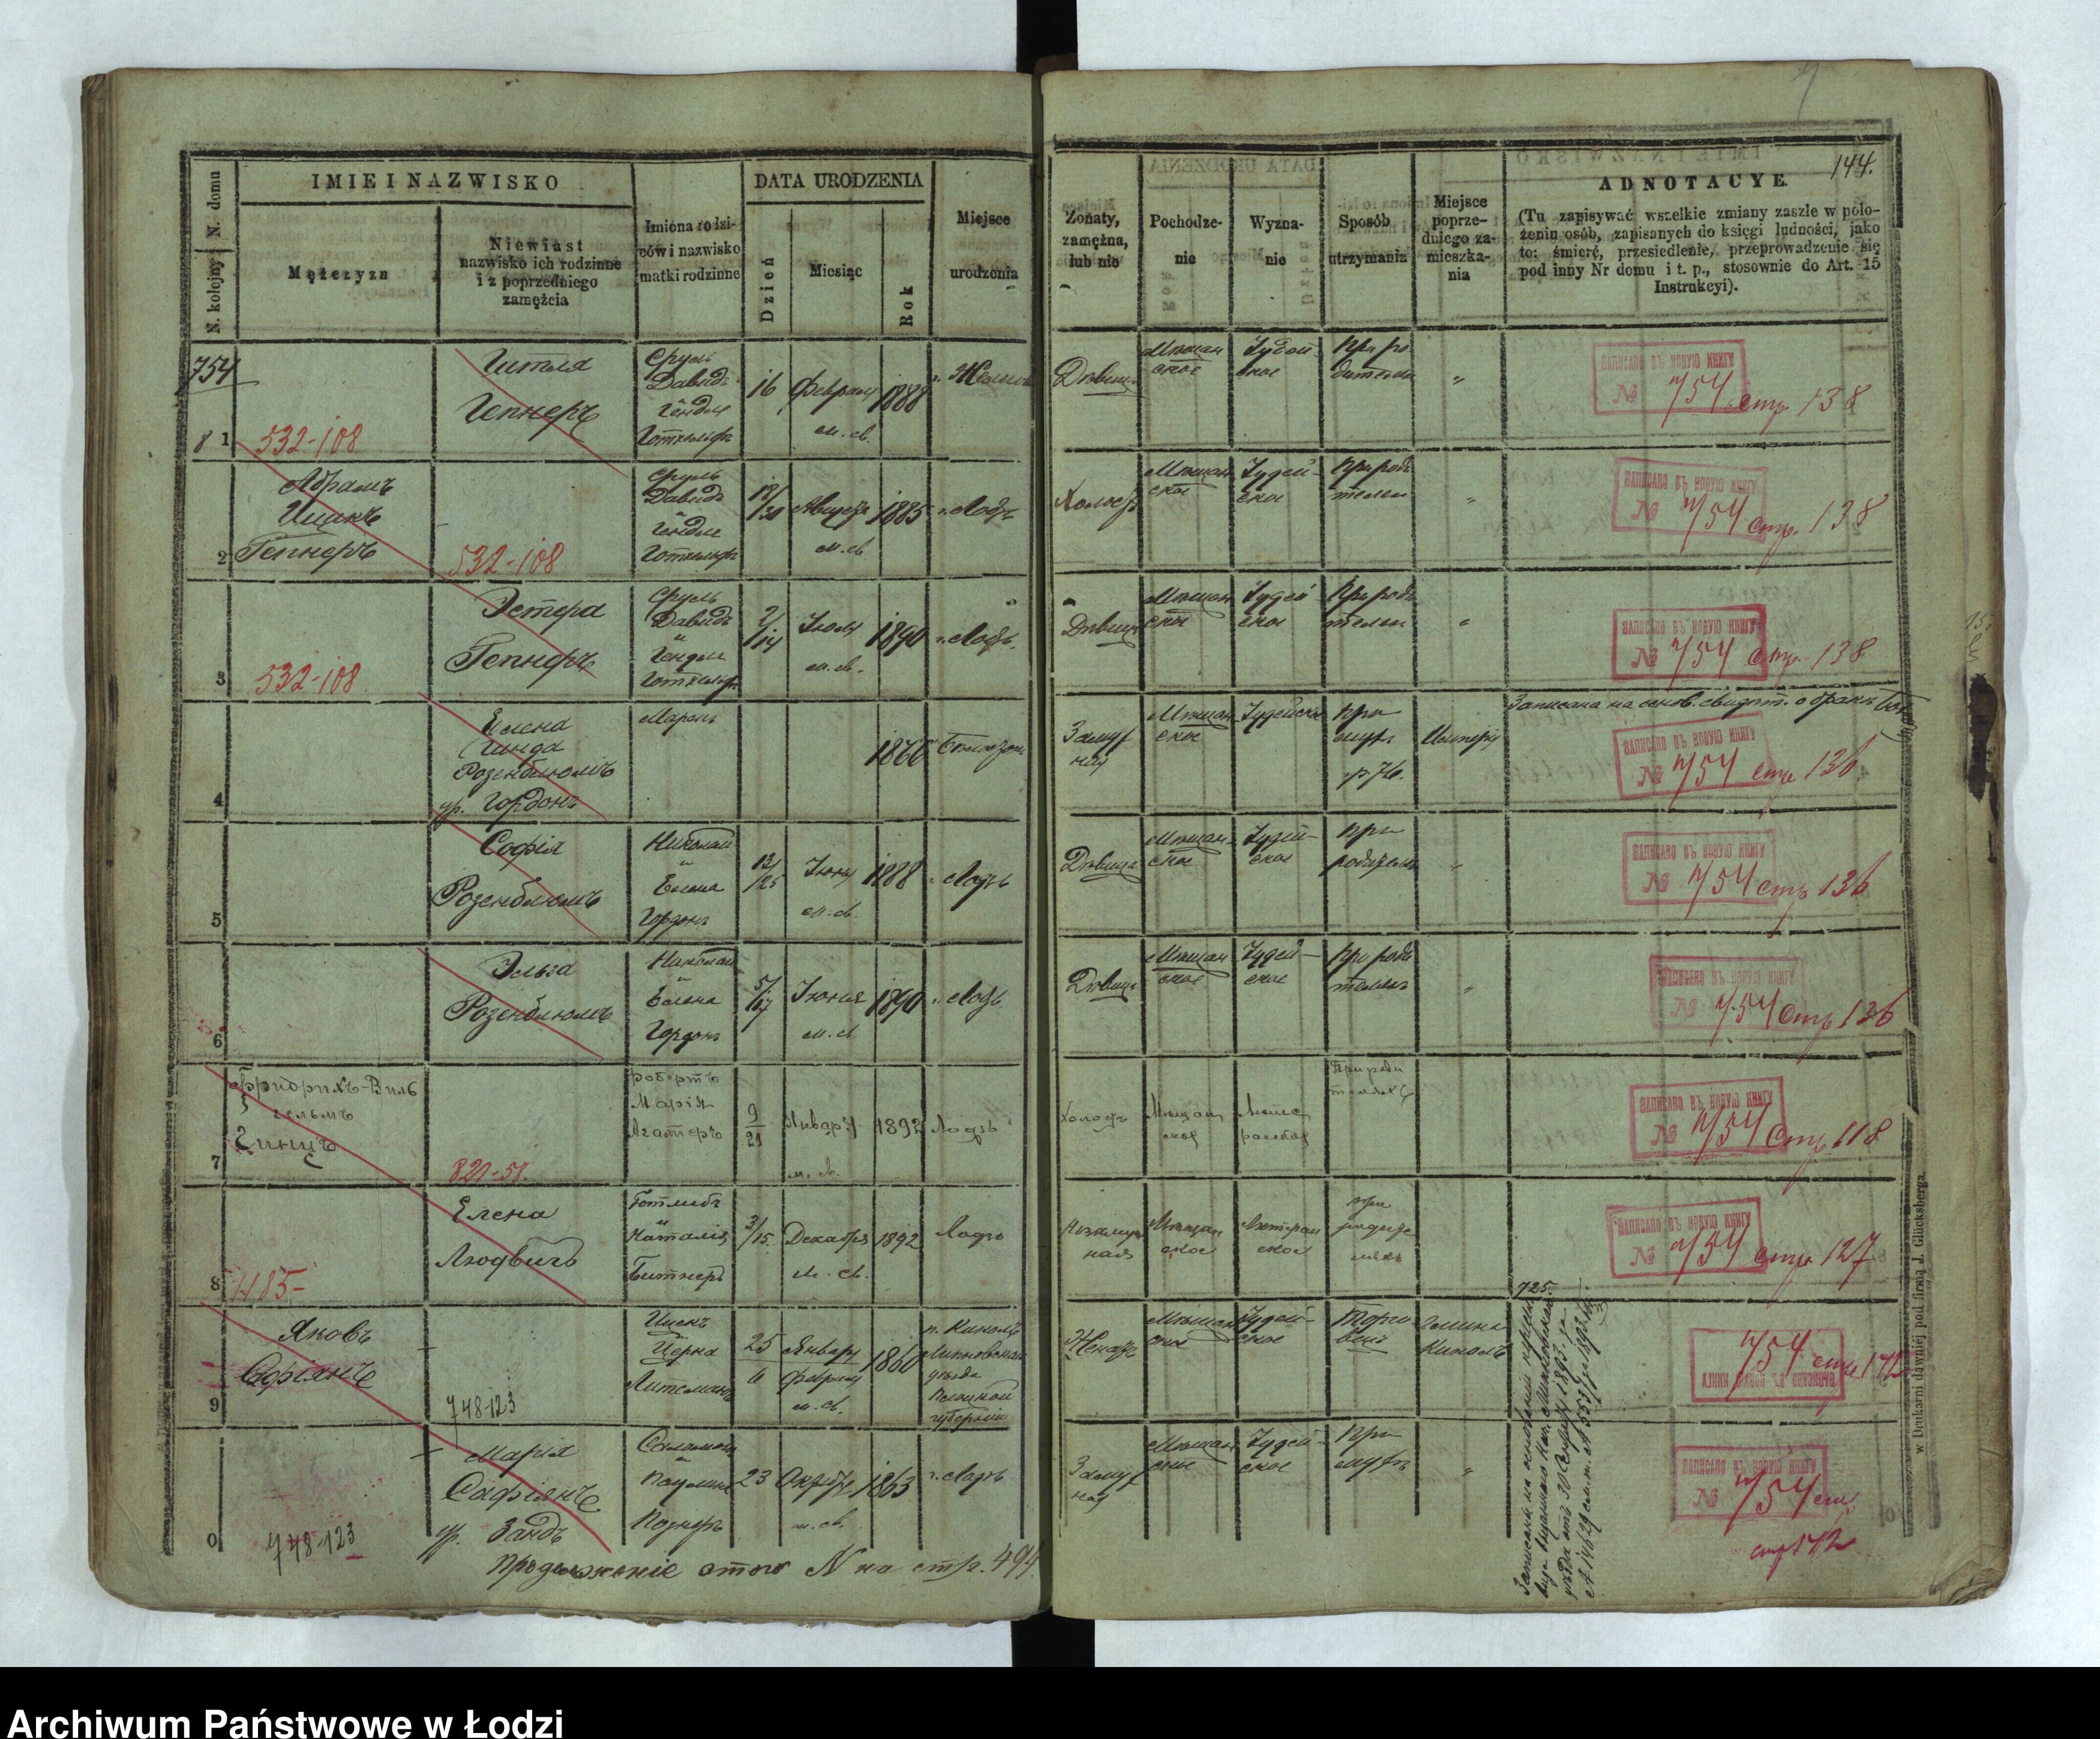 144.
N. domu
N. kolejny
IMIE I NAZWISKO
Mężczyzn
Niewiast
nazwisko ich rodzinne
i z poprzedniego
zamężcia
Imiona rodzi-
ców i nazwisko
matki rodzinne
DATA URODZENIA
Dzień
Miesiąc
Rok
Miejsce
urodzenia
Żonaty,
zamężna,
lub nie
Pochodze-
nie
Wyzna-
nie
Sposób
utrzymania
Miejsce
poprze-
dniego za-
mieszka-
nia
ADNOTACYE.
(Tu zapisywać wszelkie zmiany zaszłe w poło-
żeniu osób, zapisanych do księgi ludności, jako
to: śmierć, przesiedlenie, przeprowadzenie się
pod inny Nr domu i t. p., stosownie do Art. 15
Instrukcyi).
754
81
532-108
Гитля
Гепнеръ
Сруль
Давидъ
Гендля
16
Февраля
н. св.
1888
Дѣвица
Мѣщан
ское
Іудей
ское
При ро
дителяхъ
"
ЗАПИСАНО ВЪ НОВУЮ КНИГУ
№ 754 стр 138
2
Абрамъ
Ицикъ
Гепнеръ
532-108
Сруль
Давидъ
и
Гендля
18/30
Августа
н. св.
1885
г. Лодзь
Холостъ
Мѣщан
ское
Іудей
ское
При роди
телях
"
ЗАПИСАНО ВЪ НОВУЮ КНИГУ
№ 754 стр. 138
3
532-108
Эстера
Гепнеръ
Сруль
Давидъ
и
Гендля
2/14
Іюля
н. св.
1890
г. Лодзь.
Дѣвица
Мѣщан
ское
Іудей
ское
При роди
телях
"
ЗАПИСАНО ВЪ НОВУЮ КНИГУ
№ 754 стр. 138
4
Елена
Гинда
Розенблюмъ
ур. Гордонъ
1866
Замуж
няя
Мѣщан
ское
Іудейское
при
мужѣ
Имперія
Записана на основ. свидѣт. о бракѣ
ЗАПИСАНО ВЪ НОВУЮ КНИГУ
№ 754 стр 136
5
Софія
Розенблюмъ
Николай
и
Елена
Гордонъ
13/25
Іюня
н. св.
1888
г. Лодзь
Дѣвица
Мѣщан
ское
Іудей-
ское
при
родителях
"
ЗАПИСАНО ВЪ НОВУЮ КНИГУ
№ 754 стр 136
6
Эльза
Розенблюмъ
Николай
и
Елена
Гордонъ
5/17
Іюня
н. св.
1890
г. Лодзь
Дѣвица
Мѣщан
ское
Іудей-
ское
При роди
телях
"
ЗАПИСАНО ВЪ НОВУЮ КНИГУ
№ 754 стр 136
7
Фридрихъ-Виль
гельмъ
Гинцъ
821-51.
Робертъ
Марія
Агатеръ
9/21
Январь
н. св.
1892
Лодзь
Холостъ
Мѣщан
ское
Люте
ранское
При роди
теляхъ
ЗАПИСАНО ВЪ НОВУЮ КНИГУ
№ 754 стр 118
8
1185-
Елена
Людвигъ
Готлибъ
и
Наталія
Битнеръ
3/15.
Декабря
н. св.
1892
Лодзь
Незамуж
няя
Мѣщан
ское
Лютеран
ское
при
родите
ляхъ
ЗАПИСАНО ВЪ НОВУЮ КНИГУ
№ 754 стр 127
9
Яковъ
Софіянъ
748-123
Ицекъ
Черна
Литеманъ
25
6
Январь
Февраля
н. св.
1860
п. Киколь
Липновскаго
уѣзда
Плоцкой
губерніи
Женатъ
Мѣщан
ское
Іудей-
ское
Торго
вецъ
Гмина
Киколь
725.
ЗАПИСАНО ВЪ НОВУЮ КНИГУ
754 стр 172
0
748-123
Марія
Сафіянъ
ур. Зандъ
Саломонъ
и
Паулина
Познеръ
23
Октября
н. св.
1863
г. Лодзь
Замуж
няя
Мѣщан
ское
Іудей-
ское
При
мужѣ
"
ЗАПИСАНО ВЪ НОВУЮ КНИГУ
№ 754 стр
стр 172
Продолженіе этого N на стр. 494
w Drukarni dawniéj pod firmą J. Glücksberga.
Archiwum Państwowe w Łodzi